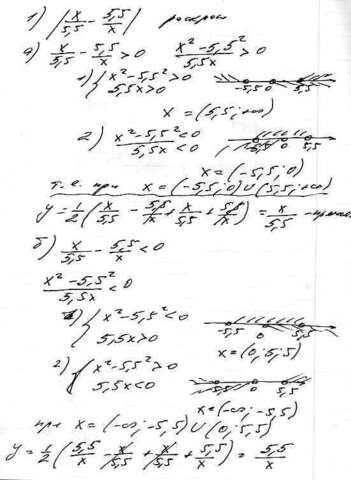 1) |x/5,5 − 5,5/x| раскрою
а) x/5,5 − 5,5/x > 0   (x² − 5,5²)/(5,5x) > 0
1) { x² − 5,5² > 0
5,5x > 0   -5,5 0 5,5
x = (5,5; +∞)
2) { x² − 5,5² < 0
5,5x < 0   -5,5 0 5,5
x = (−5,5; 0)
т.е. при x = (−5,5; 0) ∪ (5,5; +∞)
y = 1/2 (x/5,5 − 5,5/x + x/5,5 + 5,5/x) = x/5,5 −
б) x/5,5 − 5,5/x < 0
(x² − 5,5²)/(5,5x) < 0
1) { x² − 5,5² < 0
5,5x > 0   -5,5 0 5,5
x = (0; 5,5)
2) { x² − 5,5² > 0
5,5x < 0   -5,5 0 5,5
x = (−∞; −5,5)
при x = (−∞; −5,5) ∪ (0; 5,5)
y = 1/2 (5,5/x − x/5,5 + x/5,5 + 5,5/x) = 5,5/x